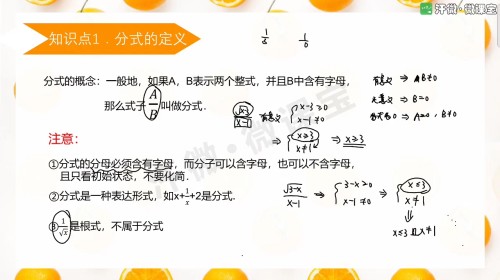 汗微·微课宝
知识点1．分式的定义
1/2 1/0
分式的概念：一般地，如果A，B表示两个整式，并且B中含有字母，
那么式子A/B叫做分式．
有意义 ⇒ B≠0
无意义 ⇒ B=0
分式为0 ⇒ A=0，B≠0
√x-3/x-1 有意义 { x-3≥0 x-1≠0
⇒ { x≥3 x≠1 ⇒ x≥3
注意：
①分式的分母必须含有字母，而分子可以含字母，也可以不含字母，
且只看初始状态，不要化简．
②分式是一种表达形式，如x+1/x+2是分式．
③1/√x是根式，不属于分式
√3-x/x-1 ⇒ { 3-x≥0 x-1≠0 ⇒ { x≤3 x≠1
⇓
x≤3且x≠1
汗微·微课宝